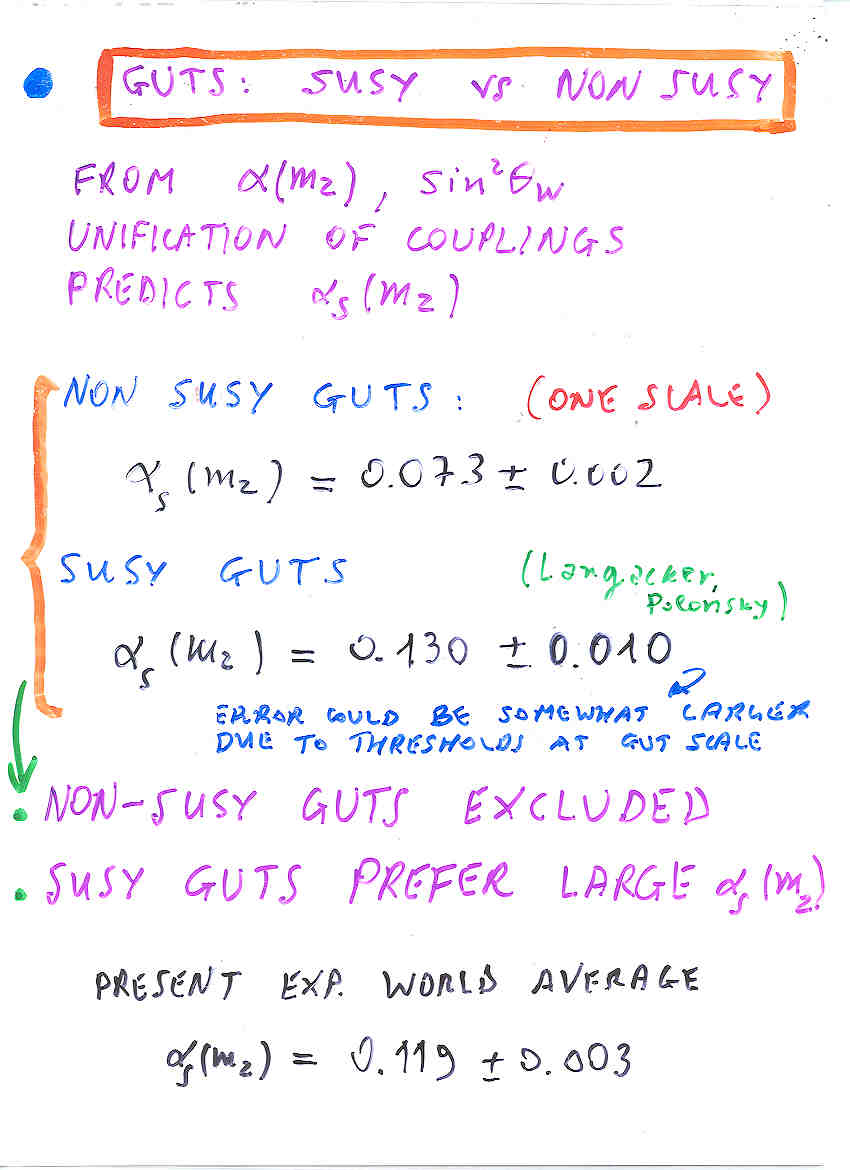 GUTS: SUSY vs NON SUSY
FROM α(m_Z), sin²θ_W
UNIFICATION OF COUPLINGS
PREDICTS α_s(m_Z)
NON SUSY GUTS: (ONE SCALE)
α_s(m_Z) = 0.073 ± 0.002
SUSY GUTS (Langacker,
Polonsky)
α_s(m_Z) = 0.130 ± 0.010
ERROR COULD BE SOMEWHAT LARGER
DUE TO THRESHOLDS AT GUT SCALE
• NON-SUSY GUTS EXCLUDED
• SUSY GUTS PREFER LARGE α_s(m_Z)
PRESENT EXP. WORLD AVERAGE
α_s(m_Z) = 0.119 ± 0.003